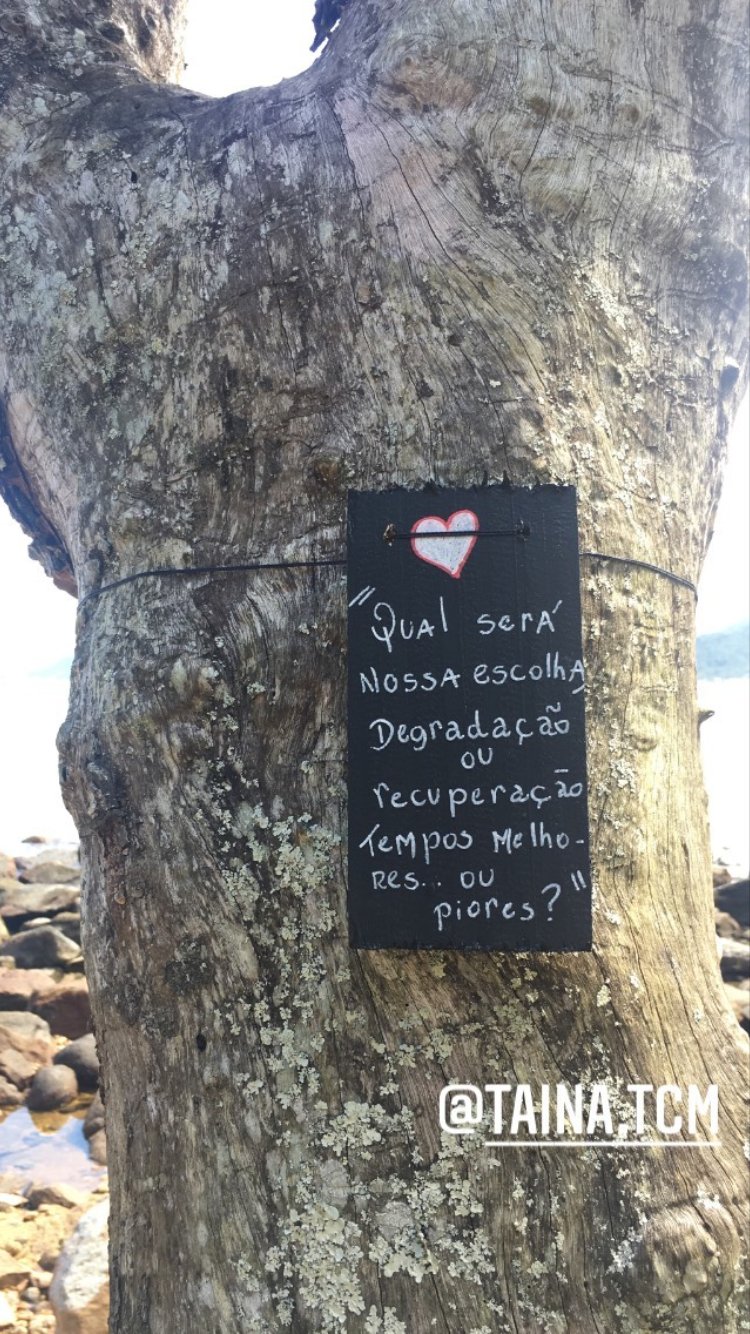 "Qual será
Nossa escolha
Degradação
ou
recuperação
Tempos Melho-
res... ou
piores?"
@TAINA,TCM